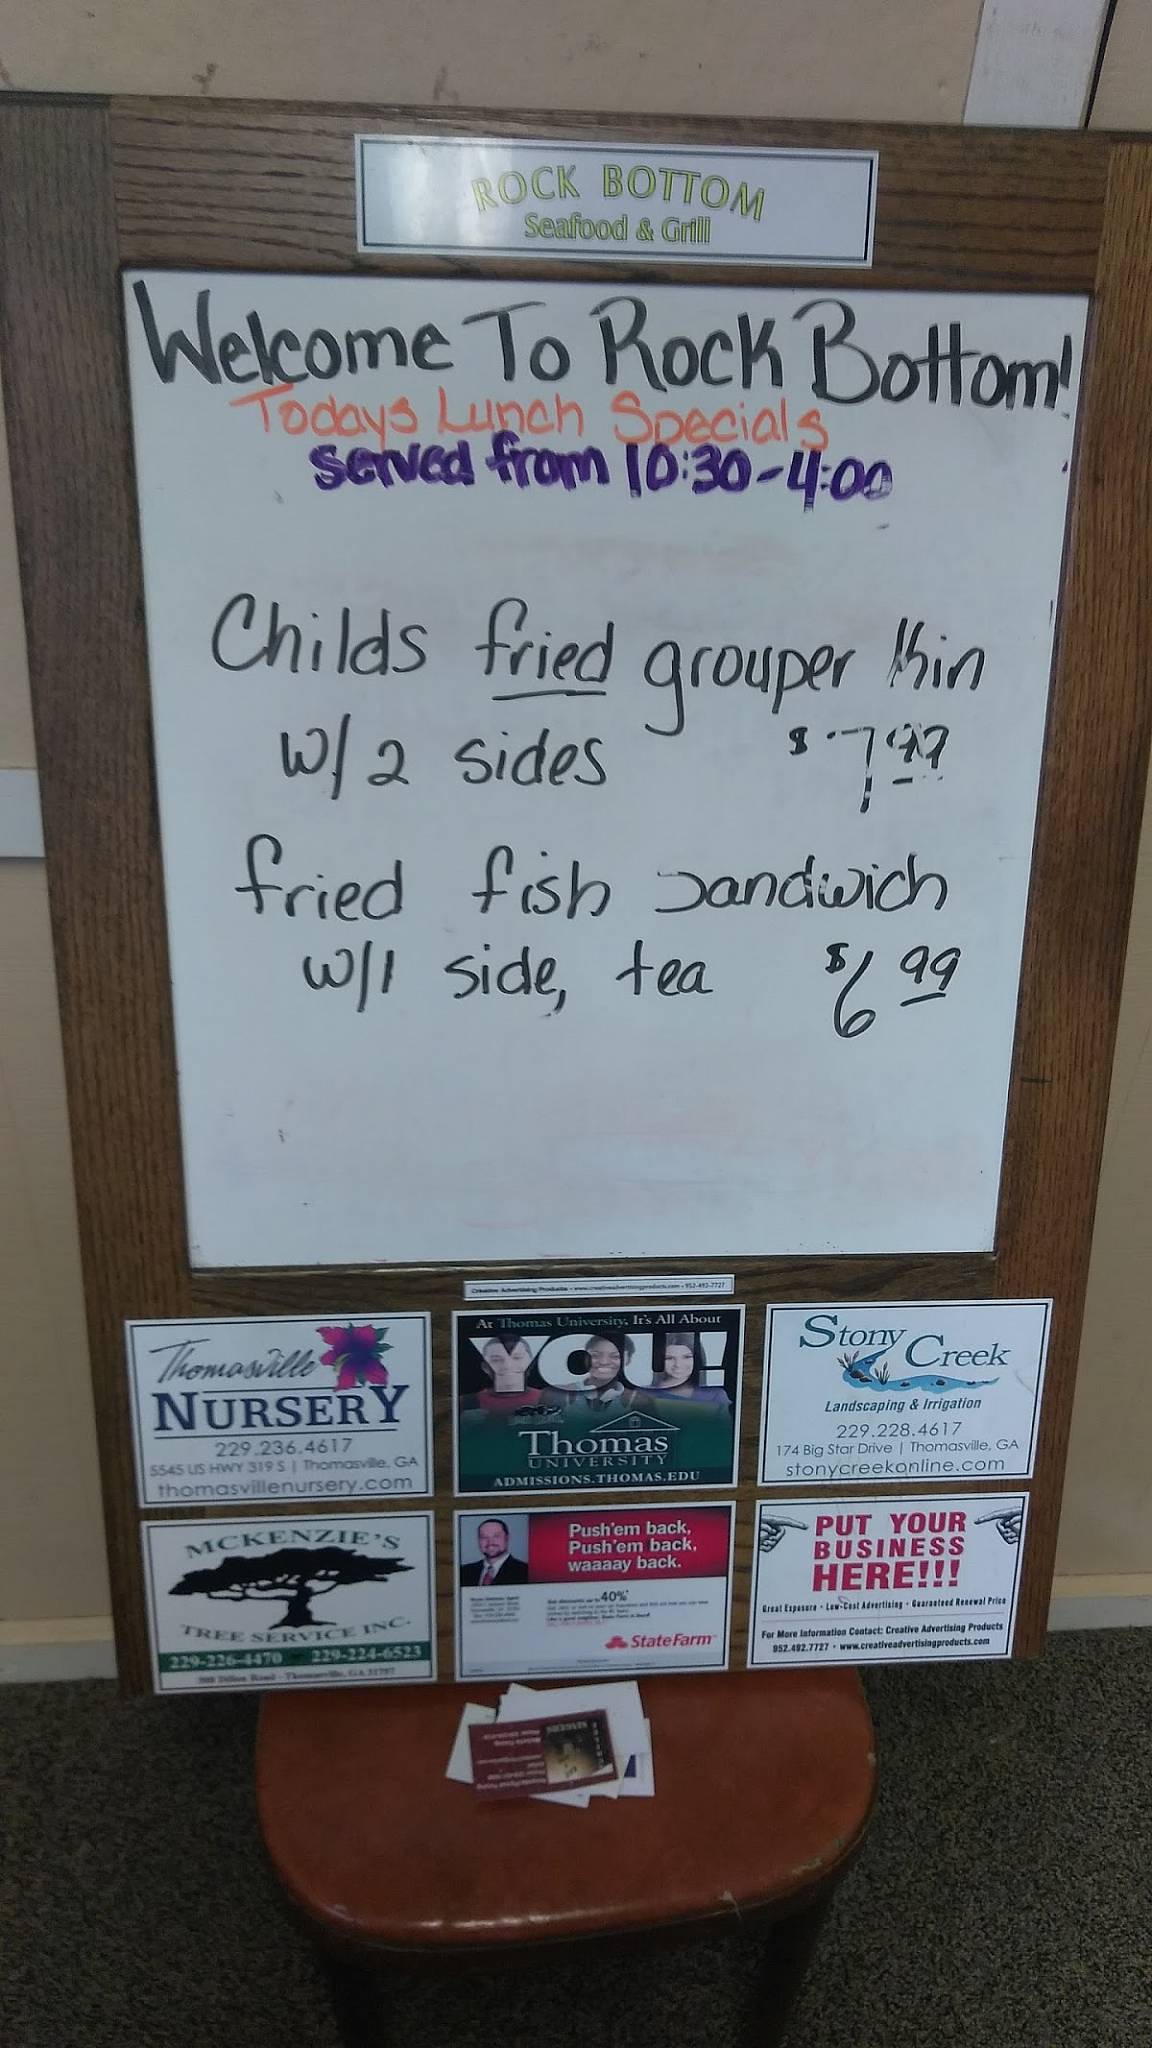 ROCK BOTTOM
Seafood & Grill
Welcome To Rock Bottom!
Todays Lunch Specials
served from 10:30-4:00
Childs fried grouper thin
w/2 sides $7.99
fried fish sandwich
w/1 side, tea $6.99
Creative Advertising Products • www.creativeadvertisingproducts.com • 952-492-7727
Thomasville
NURSERY
229.236.4617
5545 US HWY 319 S | Thomasville, GA
thomasvillenursery.com
At Thomas University, It's All About
YOU!
Thomas
UNIVERSITY
ADMISSIONS.THOMAS.EDU
Stony Creek
Landscaping & Irrigation
229.228.4617
174 Big Star Drive | Thomasville, GA
stonycreekonline.com
MCKENZIE'S
TREE SERVICE INC.
229-226-4470 229-224-6523
Dillon Road - Thomasville, GA 31757
Push'em back,
Push'em back,
waaaay back.
40%*
StateFarm
PUT YOUR
BUSINESS
HERE!!!
Great Exposure • Low-Cost Advertising • Guaranteed Renewal Price
For More Information Contact: Creative Advertising Products
952.492.7727 • www.creativeadvertisingproducts.com